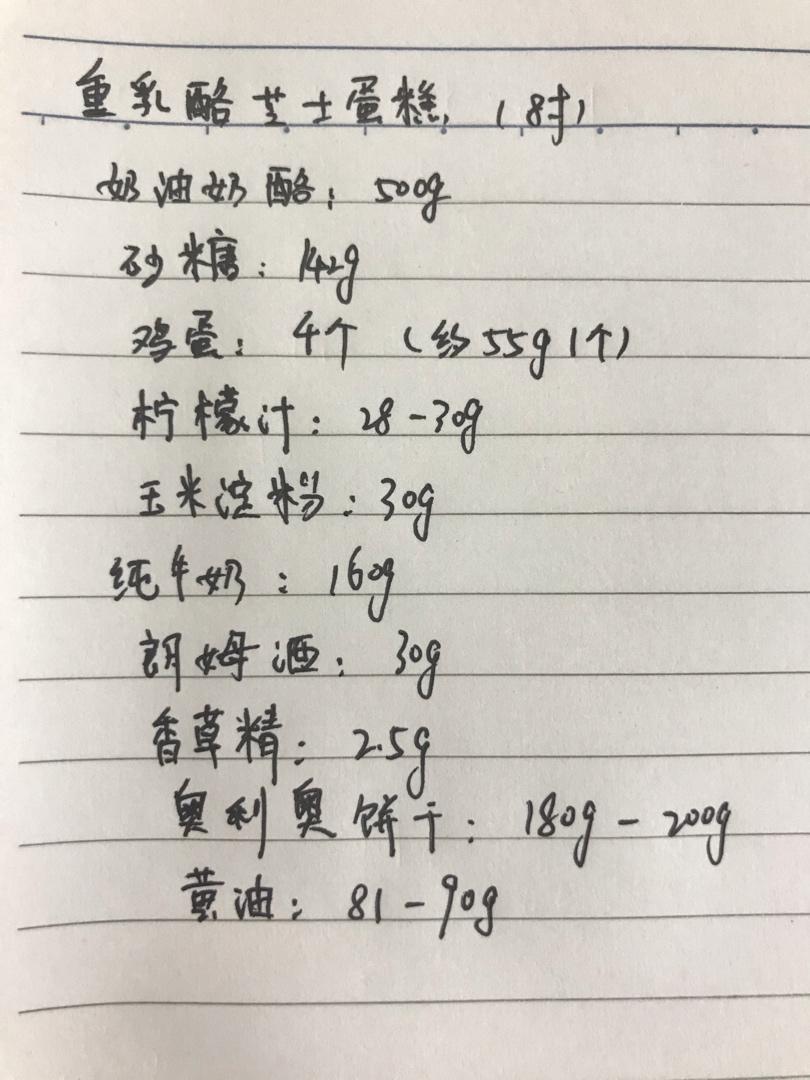 重乳酪芝士蛋糕（8寸）
奶油奶酪：500g
砂糖：142g
鸡蛋：4个（约55g1个）
柠檬汁：28-30g
玉米淀粉：30g
纯牛奶：160g
朗姆酒：30g
香草精：2.5g
奥利奥饼干：180g-200g
黄油：81-90g